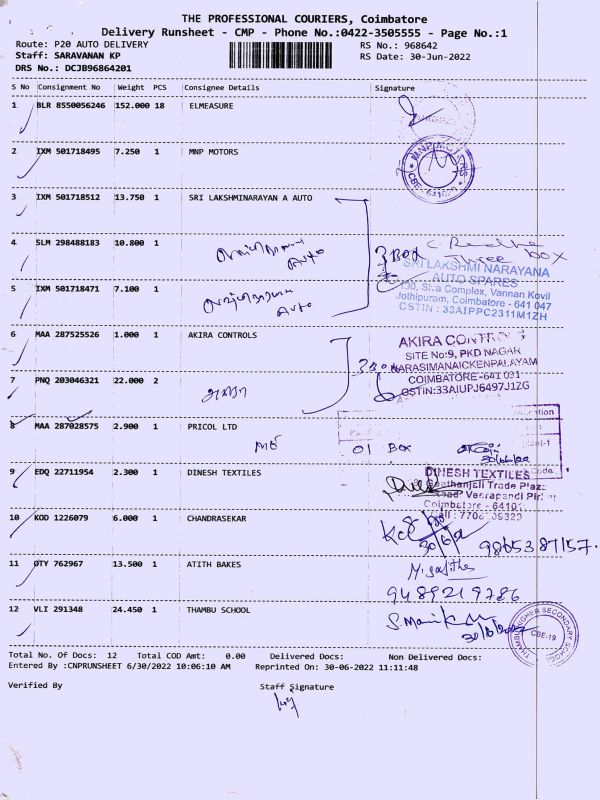 THE PROFESSIONAL COURIERS, Coimbatore
Delivery Runsheet - CMP - Phone No.:0422-3505555 - Page No.:1
Route: P20 AUTO DELIVERY RS No.: 968642
Staff: SARAVANAN KP RS Date: 30-Jun-2022
DRS No.: DCJB96864201
S No Consignment No Weight PCS Consignee Details Signature
1 BLR 8550056246 152.000 18 ELMEASURE
2 IXM 501718495 7.250 1 MNP MOTORS
MNP MOTORS
CBE - 641029
3 IXM 501718512 13.750 1 SRI LAKSHMINARAYAN A AUTO
4 SLM 298488183 10.800 1
3 Box Three box
SRI LAKSHMI NARAYANA
AUTO SPARES
5 IXM 501718471 7.100 1
Complex, Vannan Kovil
Jothipuram, Coimbatore - 641 047
GSTIN : 33AIPPC2311M1ZH
6 MAA 287525526 1.000 1 AKIRA CONTROLS
AKIRA CONTROLS
SITE No:9, PKD NAGAR
NARASIMANAICKENPALAYAM
7 PNQ 203046321 22.000 2
COIMBATORE-641 031
GSTIN:33AIUPJ6497J1ZG
8 MAA 287028575 2.900 1 PRICOL LTD
01 Box
9 EDQ 22711954 2.300 1 DINESH TEXTILES
DINESH TEXTILES
Geethanjali Trade Plaza
Veerapandi Pirivu
10 KOD 1226079 6.000 1 CHANDRASEKAR
30/6/22 9865387157.
11 OTY 762967 13.500 1 ATITH BAKES
9489219786
12 VLI 291348 24.450 1 THAMBU SCHOOL
THAMBU HIGHER SECONDARY SCHOOL
CBE-19
Total No. Of Docs: 12 Total COD Amt: 0.00 Delivered Docs: Non Delivered Docs:
Entered By :CNPRUNSHEET 6/30/2022 10:06:10 AM Reprinted On: 30-06-2022 11:11:48
Verified By Staff Signature